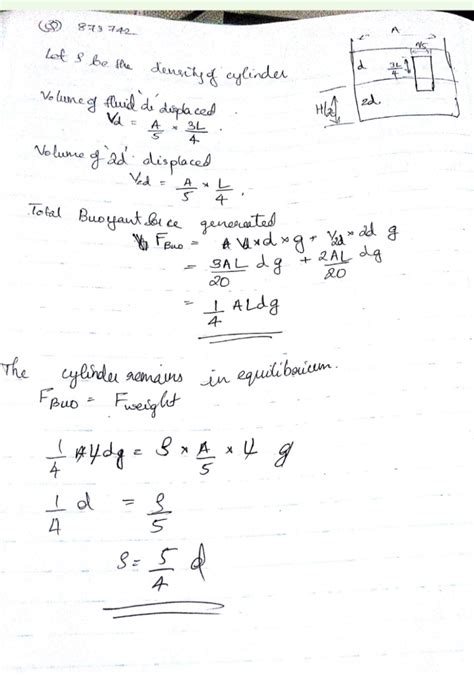 (50) 873742
A
A/5
Let ρ be the density of cylinder
d
3L/4
H/2
2d
Volume of fluid 'd' displaced
Vd = A/5 × 3L/4 .
Volume of '2d' displaced
V2d = A/5 × L/4 .
Total Buoyant force generated
FBuo = Vd × d × g + V2d × 2d g
= 3AL/20 dg + 2AL/20 dg
= 1/4 ALdg
The cylinder remains in equilibrium.
FBuo = Fweight
1/4 ALdg = ρ × A/5 × L g
1/4 d = ρ/5
ρ = 5/4 d